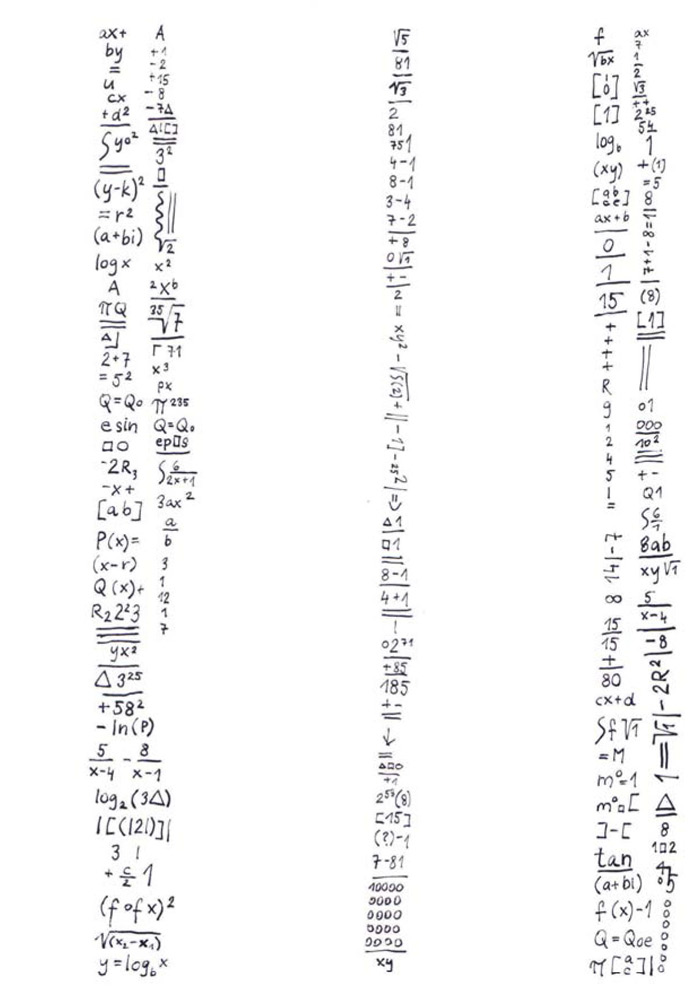 ax+
by
=
u
cx
+d²
∫y0²
(y-k)²
=r²
(a+bi)
log x
A
πQ
2+7
=5²
Q=Q₀
e sin
□○
-2R₃
-x+
[ab]
P(x)=
(x-r)
Q(x)+
R₂2²3
yx²
Δ3²⁵
+58²
-ln(P)
5/x-4 - 8/x-1
log₂(3Δ)
|[(|2|)]|
3 |
+ c/2 1
(f∘fx)²
√(x₂-x₁)
y=log_b x
A
+1
-2
+15
-8
-7Δ
Δ|[]
3²
□
√2
x²
2x⁶
35√7
Γ71
x³
px
π²³⁵
Q=Q₀
ep□s
∫6/2x+1
3ax²
a/b
3
1
12
1
7
√5
81
√3
2
81
751
4-1
8-1
3-4
7-2
+8
0√1
+-
2
= xy² - √5(2) + || - 1] - 25² | =>
Δ1
□1
8-1
4+1
|
02⁷¹
+85
185
+-
=
↓
=
Δ□○
+1
2⁵⁹(8)
[15]
(?)-1
7-81
10000
0000
0000
0000
0000
xy
f
√bx
[1]
log_b
(xy)
ax+b
0
1
15
+
+
+
+
R
g
1
2
4
5
|
=
14|-7
∞
15
15
+
80
cx+d
∫f√1
=M
m°=1
m°□[
]-[
tan
(a+bi)
f(x)-1
Q=Qoe
π[a/c]|
ax
7
1
2
√3
++
2²⁵
54
1
+(1)
=5
8
7+1-8=1
(8)
[1]
01
000
10²
+-
Q1
∫6/1
8ab
xy√1
5/x-4
-8
1=√1|-2R²|
Δ
8
1□2